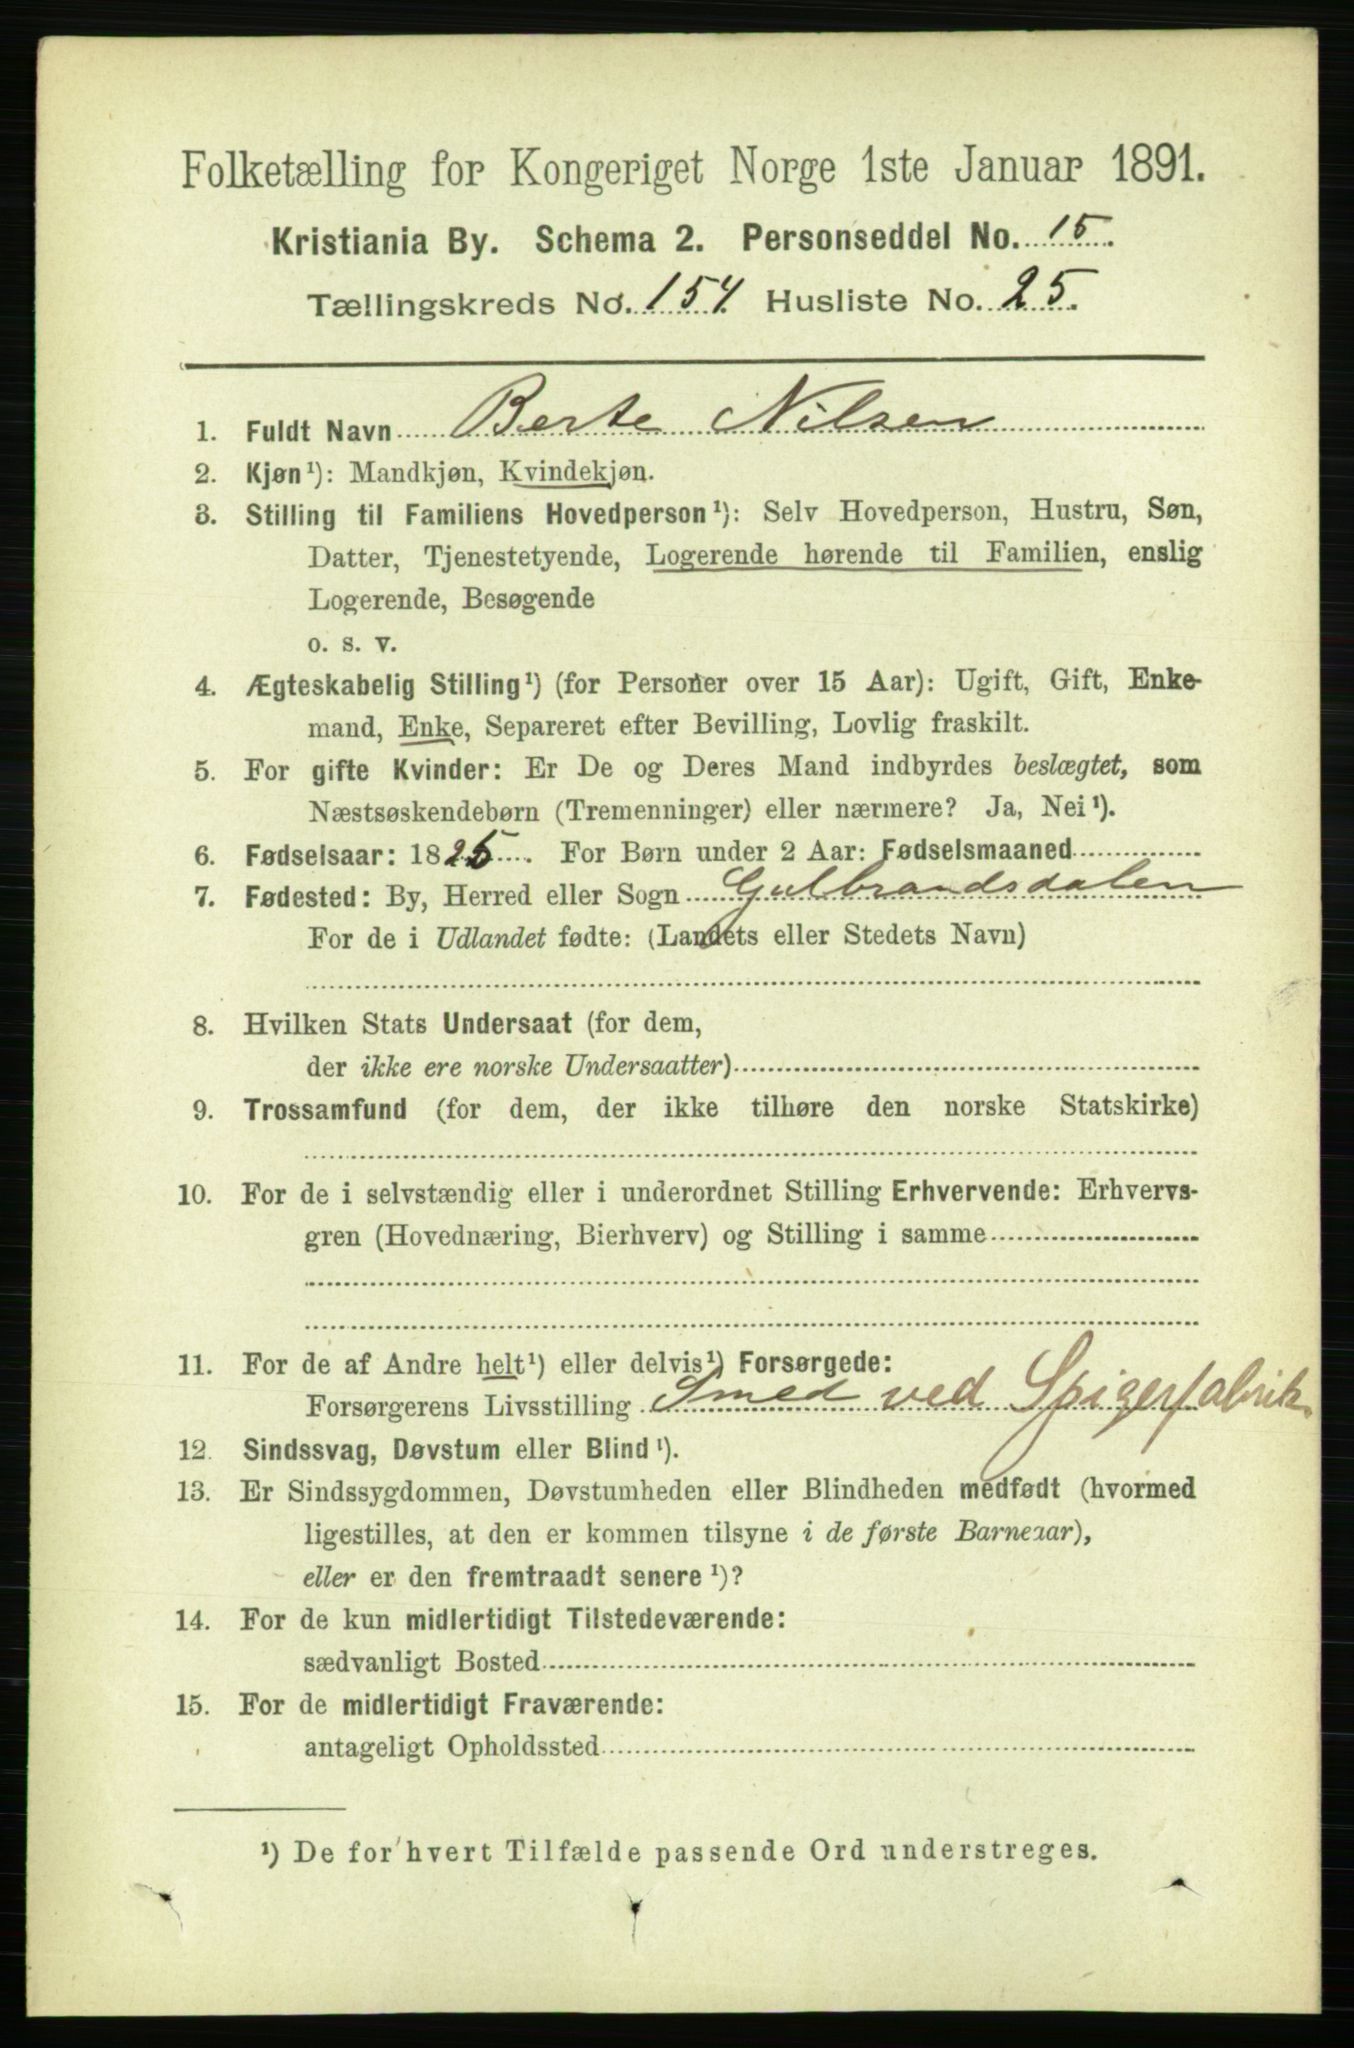 Folketælling for Kongeriget Norge 1ste Januar 1891.
Kristiania By. Schema 2. Personseddel No. 15.
Tællingskreds No. 154. Husliste No. 25.
1. Fuldt Navn Berte Nilsen
2. Kjøn¹): Mandkjøn, Kvindekjøn.
3. Stilling til Familiens Hovedperson¹): Selv Hovedperson, Hustru, Søn,
Datter, Tjenestetyende, Logerende hørende til Familien, enslig
Logerende, Besøgende
o. s. v.
4. Ægteskabelig Stilling¹) (for Personer over 15 Aar): Ugift, Gift, Enke-
mand, Enke, Separeret efter Bevilling, Lovlig fraskilt.
5. For gifte Kvinder: Er De og Deres Mand indbyrdes beslægtet, som
Næstsøskendebørn (Tremenninger) eller nærmere? Ja, Nei¹).
6. Fødselsaar: 1825. For Børn under 2 Aar: Fødselsmaaned
7. Fødested: By, Herred eller Sogn Gulbrandsdalen
For de i Udlandet fødte: (Landets eller Stedets Navn)
8. Hvilken Stats Undersaat (for dem,
der ikke ere norske Undersaatter)
9. Trossamfund (for dem, der ikke tilhøre den norske Statskirke)
10. For de i selvstændig eller i underordnet Stilling Erhvervende: Erhvervs-
gren (Hovednæring, Bierhverv) og Stilling i samme
11. For de af Andre helt¹) eller delvis¹) Forsørgede:
Forsørgerens Livsstilling Smed ved Spigerfabrik.
12. Sindssvag, Døvstum eller Blind¹).
13. Er Sindssygdommen, Døvstumheden eller Blindheden medfødt (hvormed
ligestilles, at den er kommen tilsyne i de første Barneaar),
eller er den fremtraadt senere¹)?
14. For de kun midlertidigt Tilstedeværende:
sædvanligt Bosted
15. For de midlertidigt Fraværende:
antageligt Opholdssted
¹) De for hvert Tilfælde passende Ord understreges.